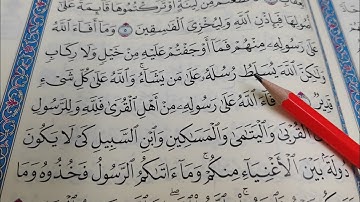 لِّينَةٍ أَوْ تَرَكْتُمُوهَا قَآئِمَةً
أُصُولِهَا فَبِإِذْنِ ٱللَّهِ وَلِيُخْزِيَ ٱلْفَٰسِقِينَ ٥ وَمَآ أَفَآءَ ٱللَّهُ
عَلَىٰ رَسُولِهِۦ مِنْهُمْ فَمَآ أَوْجَفْتُمْ عَلَيْهِ مِنْ خَيْلٍ وَلَا رِكَابٍ
وَلَٰكِنَّ ٱللَّهَ يُسَلِّطُ رُسُلَهُۥ عَلَىٰ مَن يَشَآءُ ۚ وَٱللَّهُ عَلَىٰ كُلِّ شَيْءٍ
قَدِيرٌ ٦ فَآءَ ٱللَّهُ عَلَىٰ رَسُولِهِۦ مِنْ أَهْلِ ٱلْقُرَىٰ فَلِلَّهِ وَلِلرَّسُولِ
ٱلْقُرْبَىٰ وَٱلْيَتَٰمَىٰ وَٱلْمَسَٰكِينِ وَٱبْنِ ٱلسَّبِيلِ كَيْ لَا يَكُونَ
دُولَةًۢ بَيْنَ ٱلْأَغْنِيَآءِ مِنكُمْ ۚ وَمَآ ءَاتَىٰكُمُ ٱلرَّسُولُ فَخُذُوهُ وَمَا